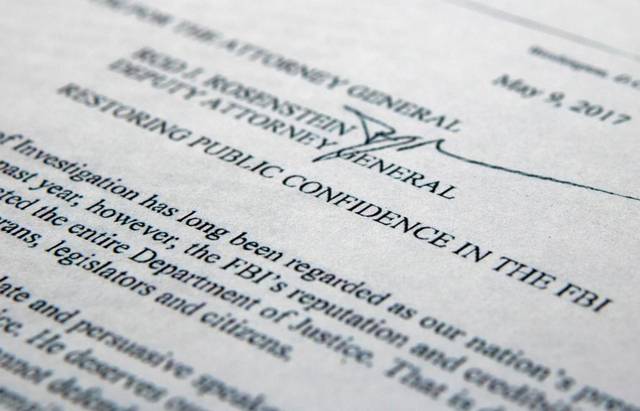 May 9, 2017
FOR THE ATTORNEY GENERAL
ROD J. ROSENSTEIN
DEPUTY ATTORNEY GENERAL
RESTORING PUBLIC CONFIDENCE IN THE FBI
of Investigation has long been regarded as our nation's
past year, however, the FBI's reputation and
the entire Department of Justice. That is
legislators and citizens.
and persuasive
He deserves